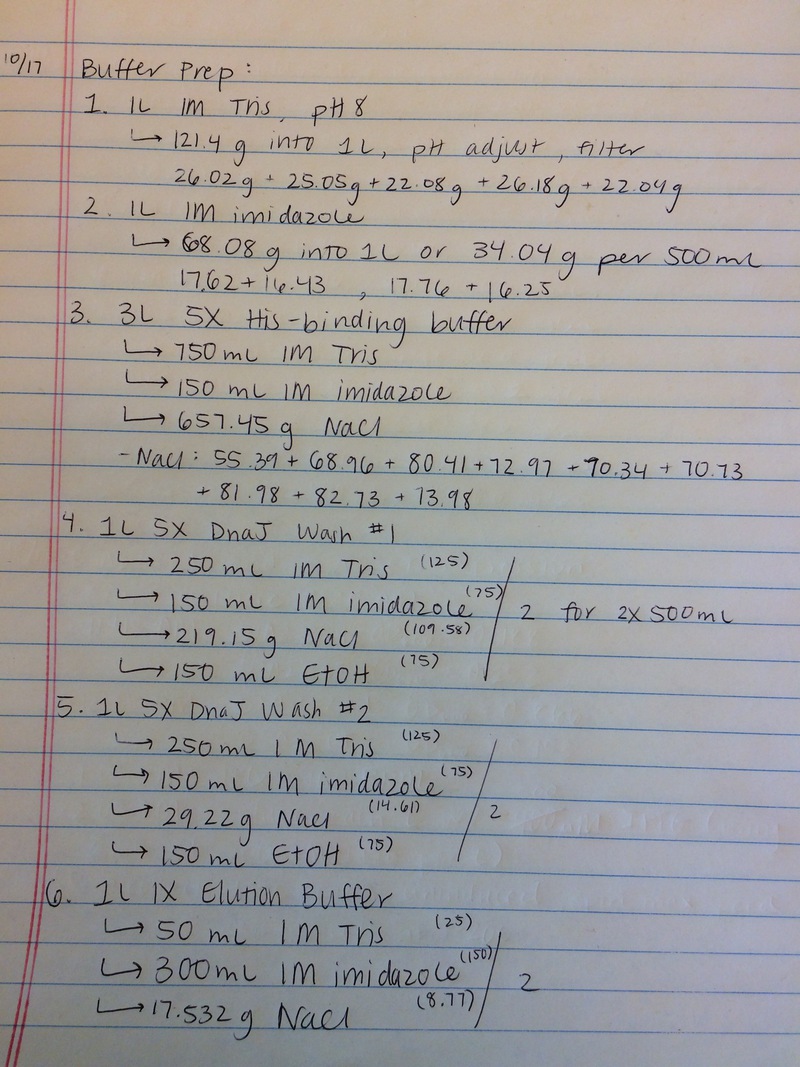 10/17 Buffer Prep:
1. 1L 1M Tris, pH 8
↳ 121.4 g into 1L, pH adjust, filter
26.02g + 25.05g + 22.08g + 26.18g + 22.04g
2. 1L 1M imidazole
↳ 68.08 g into 1L or 34.04 g per 500mL
17.62 + 16.43 , 17.76 + 16.25
3. 3L 5X His-binding buffer
↳ 750 mL 1M Tris
↳ 150 mL 1M imidazole
↳ 657.45 g NaCl
- NaCl: 55.39 + 68.96 + 80.41 + 72.97 + 70.34 + 70.73
+ 81.98 + 82.73 + 73.98
4. 1L 5X DnaJ Wash #1
↳ 250 mL 1M Tris (125)
↳ 150 mL 1M imidazole (75) / 2 for 2X 500mL
↳ 219.15 g NaCl (109.58)
↳ 150 mL EtOH (75)
5. 1L 5X DnaJ Wash #2
↳ 250 mL 1M Tris (125)
↳ 150 mL 1M imidazole (75)
↳ 29.22g NaCl (14.61) / 2
↳ 150 mL EtOH (75)
6. 1L 1X Elution Buffer
↳ 50 mL 1M Tris (25)
↳ 300mL 1M imidazole (150) / 2
↳ 17.532 g NaCl (8.77)